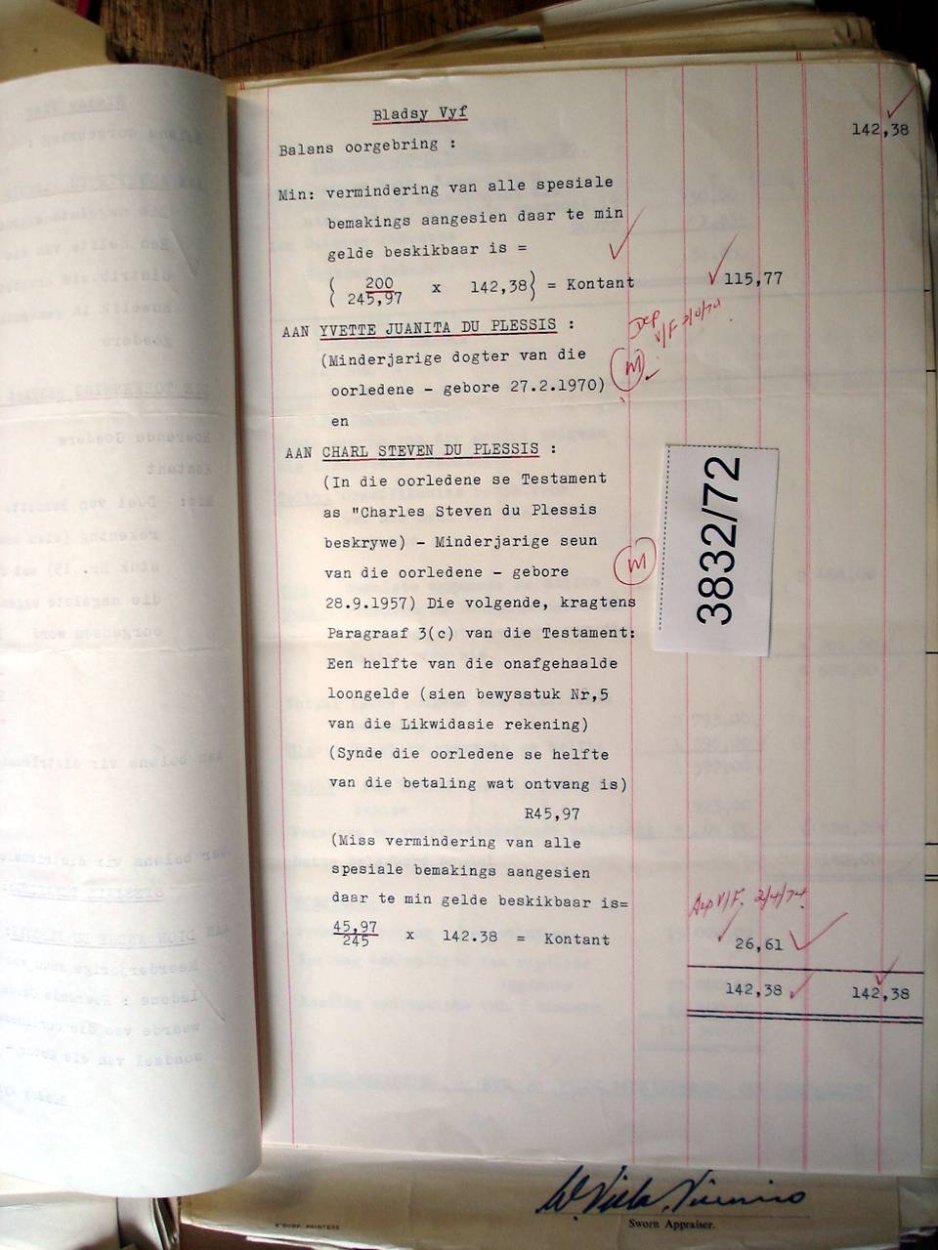 Bladsy Vyf
142,38
Balans oorgebring :
Min: vermindering van alle spesiale
bemakings aangesien daar te min
gelde beskikbaar is =
( 200 / 245,97 x 142,38) = Kontant 115,77
Dep V/F
AAN YVETTE JUANITA DU PLESSIS :
(Minderjarige dogter van die
M
oorledene - gebore 27.2.1970)
en
AAN CHARL STEVEN DU PLESSIS :
(In die oorledene se Testament
as "Charles Steven du Plessis
beskrywe) - Minderjarige seun
van die oorledene - gebore
M
28.9.1957) Die volgende, kragtens
Paragraaf 3(c) van die Testament:
Een helfte van die onafgehaalde
loongelde (sien bewysstuk Nr,5
van die Likwidasie rekening)
(Synde die oorledene se helfte
van die betaling wat ontvang is)
R45,97
(Miss vermindering van alle
spesiale bemakings aangesien
daar te min gelde beskikbaar is=
Dep V/F. 2/4/74
45,97 / 245 x 142.38 = Kontant 26,61
142,38 142,38
3832/72
Sworn Appraiser.